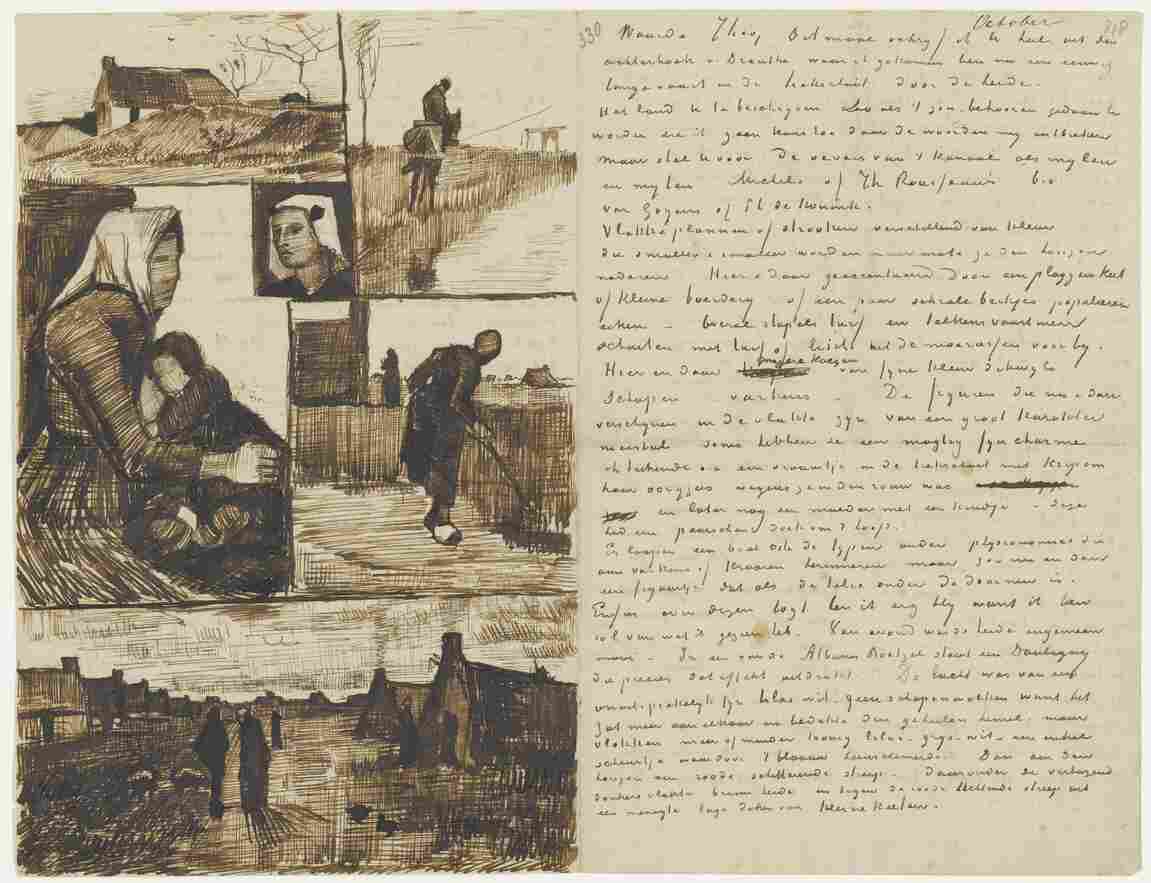 330 October 318
Waarde Theo, Ditmaal schrijf ik U heel uit den
achterhoek v. Drenthe waar ik gekomen ben na een eeuwig
lange vaart in de trekschuit door de heide.
Het land U te beschrijven zoo als 't zou behooren gedaan te
worden zie ik geen kans toe daar de woorden mij ontbreken
maar stel U voor de oevers van 't kanaal als mijlen
en mijlen Michels of Th Rousseau's b.v.
van Goyens of Ph de Koninck.
Vlakke plannen of strooken verschillend van kleur
die smaller & smaller worden naarmate zij den horizon
naderen. Hier & daar geaccentueerd door een plaggen keet
of kleine boerderij of een paar schrale berkjes populieren
eiken – overal stapels turf en telkens vaart men
schuiten met turf of lisch uit de moerassen voorbij.
Hier en daar magere koeien van fijne kleur dikwijls
schapen – varkens – De figuren die nu & dan
verschijnen in de vlakte zijn van een groot karakter
meestal soms hebben ze een magtig fijn charme
ik teekende o.a. een vrouwtje in de trekschuit met krip om
haar oorijzers wegens ze in den rouw was
en later nog een moeder met een kindje – deze
had een paarschen doek om 't hoofd.
Er loopen een boel Ostade typen onder physionomies die
aan varkens of kraaien herinneren maar zoo nu en dan
een figuurtje dat als de lelie onder de doornen is.
Enfin over dezen togt ben ik erg blij want ik ben
vol van wat ik gezien heb. Van avond was de heide ongemeen
mooi – In een van de Albums Boetzel staat een Daubigny
die precies dat effekt uitdrukt. De lucht was van een
onuitsprekelijk fijn lilas wit – geen schapenwolken want het
zat meer aan elkaar en bedekte den geheelen hemel maar
vlokken meer of minder toonig lilas – grijs – wit – een enkel
scheurtje waardoor 't blaauw heenschemerde. Dan aan den
horizon een roode schitterende streep – daaronder de verbazend
donkere vlakte bruine heide en tegen de roode lichtende streep af
een menigte lage daken van kleine keeten.